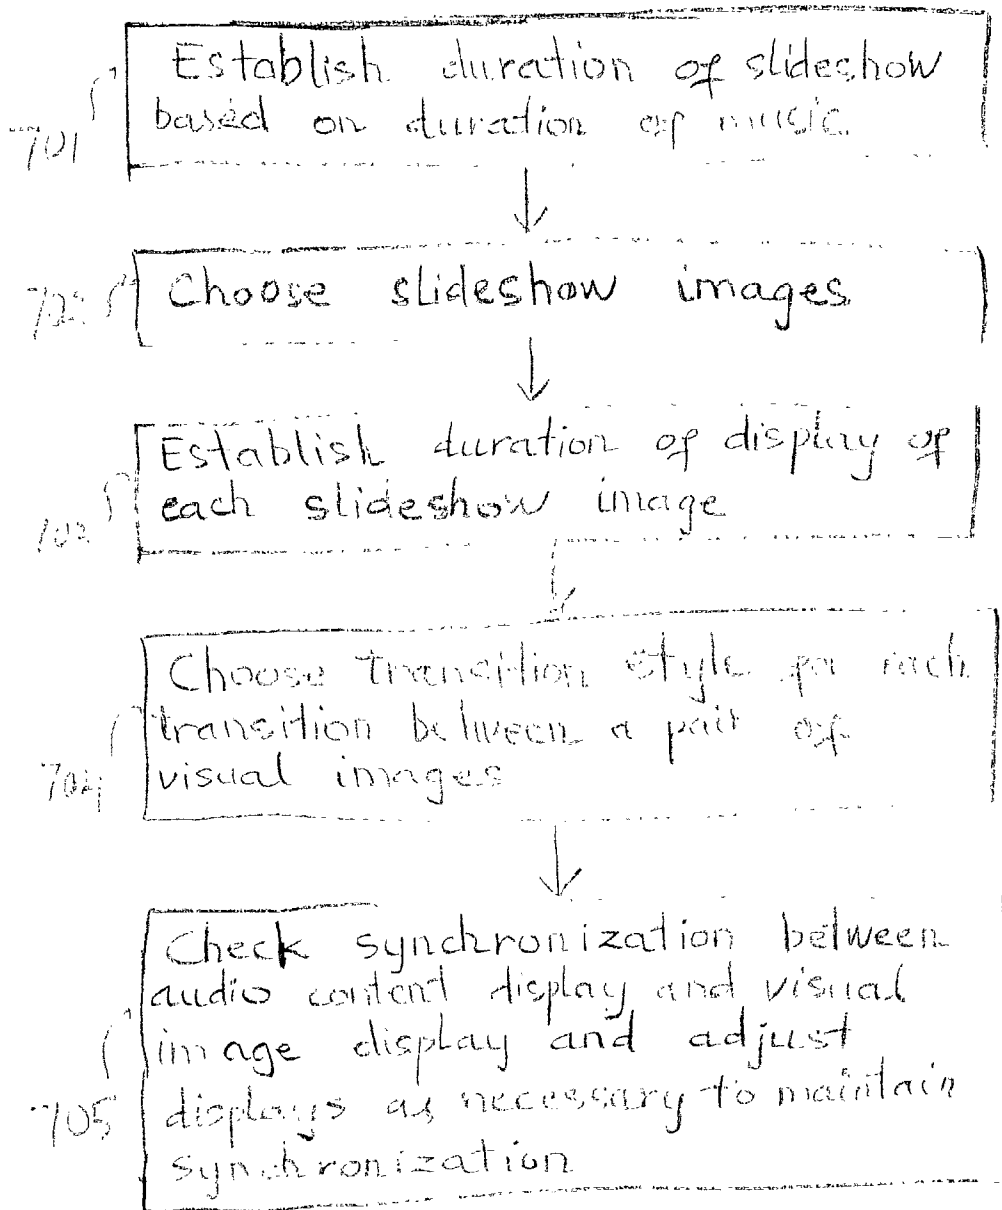 Establish duration of slideshow
based on duration of music
701
Choose slideshow images
702
Establish duration of display of
each slideshow image
703
Choose transition style for each
transition between a pair of
visual images
704
Check synchronization between
audio content display and visual
image display and adjust
displays as necessary to maintain
synchronization
705